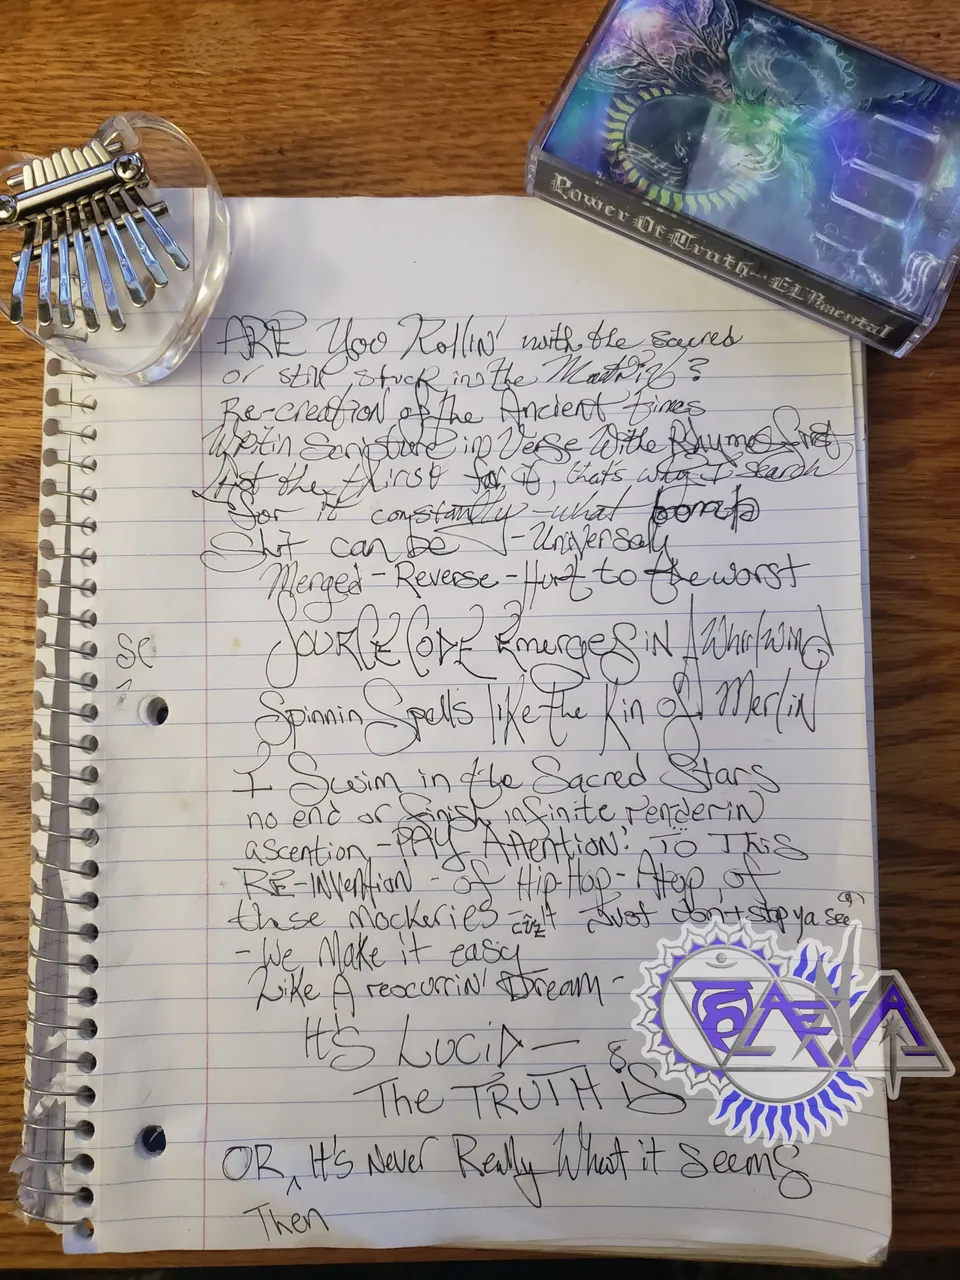 Power Of Truth - ELPmental
ARE You Rollin' with the sacred
or still stuck in the Matrix?
Re-creation of the Ancient times
Writin Scripture in Verse With Rhymes first
the thirst for it, that's why I search
for it constantly - what bomb
Shit can be - Universaly
Merged - Reverse - Hurt to the worst
SOURCE CODE EmergeS iN A Whirlwind
SC
Spinnin Spells like the Kin of Merlin
I Swim in the Sacred Stars
no end or finish infinite renderin
ascention - PAY Attention: TO This
RE-INVENTION - of Hip-Hop - Atop of
these mockeries - cuz it Just don't stop ya see
- We Make it easy
Like A reoccurrin' Dream -
It's LUCiD -
& The TRUTH iS
OR, It's Never Really What it Seems
^ Then